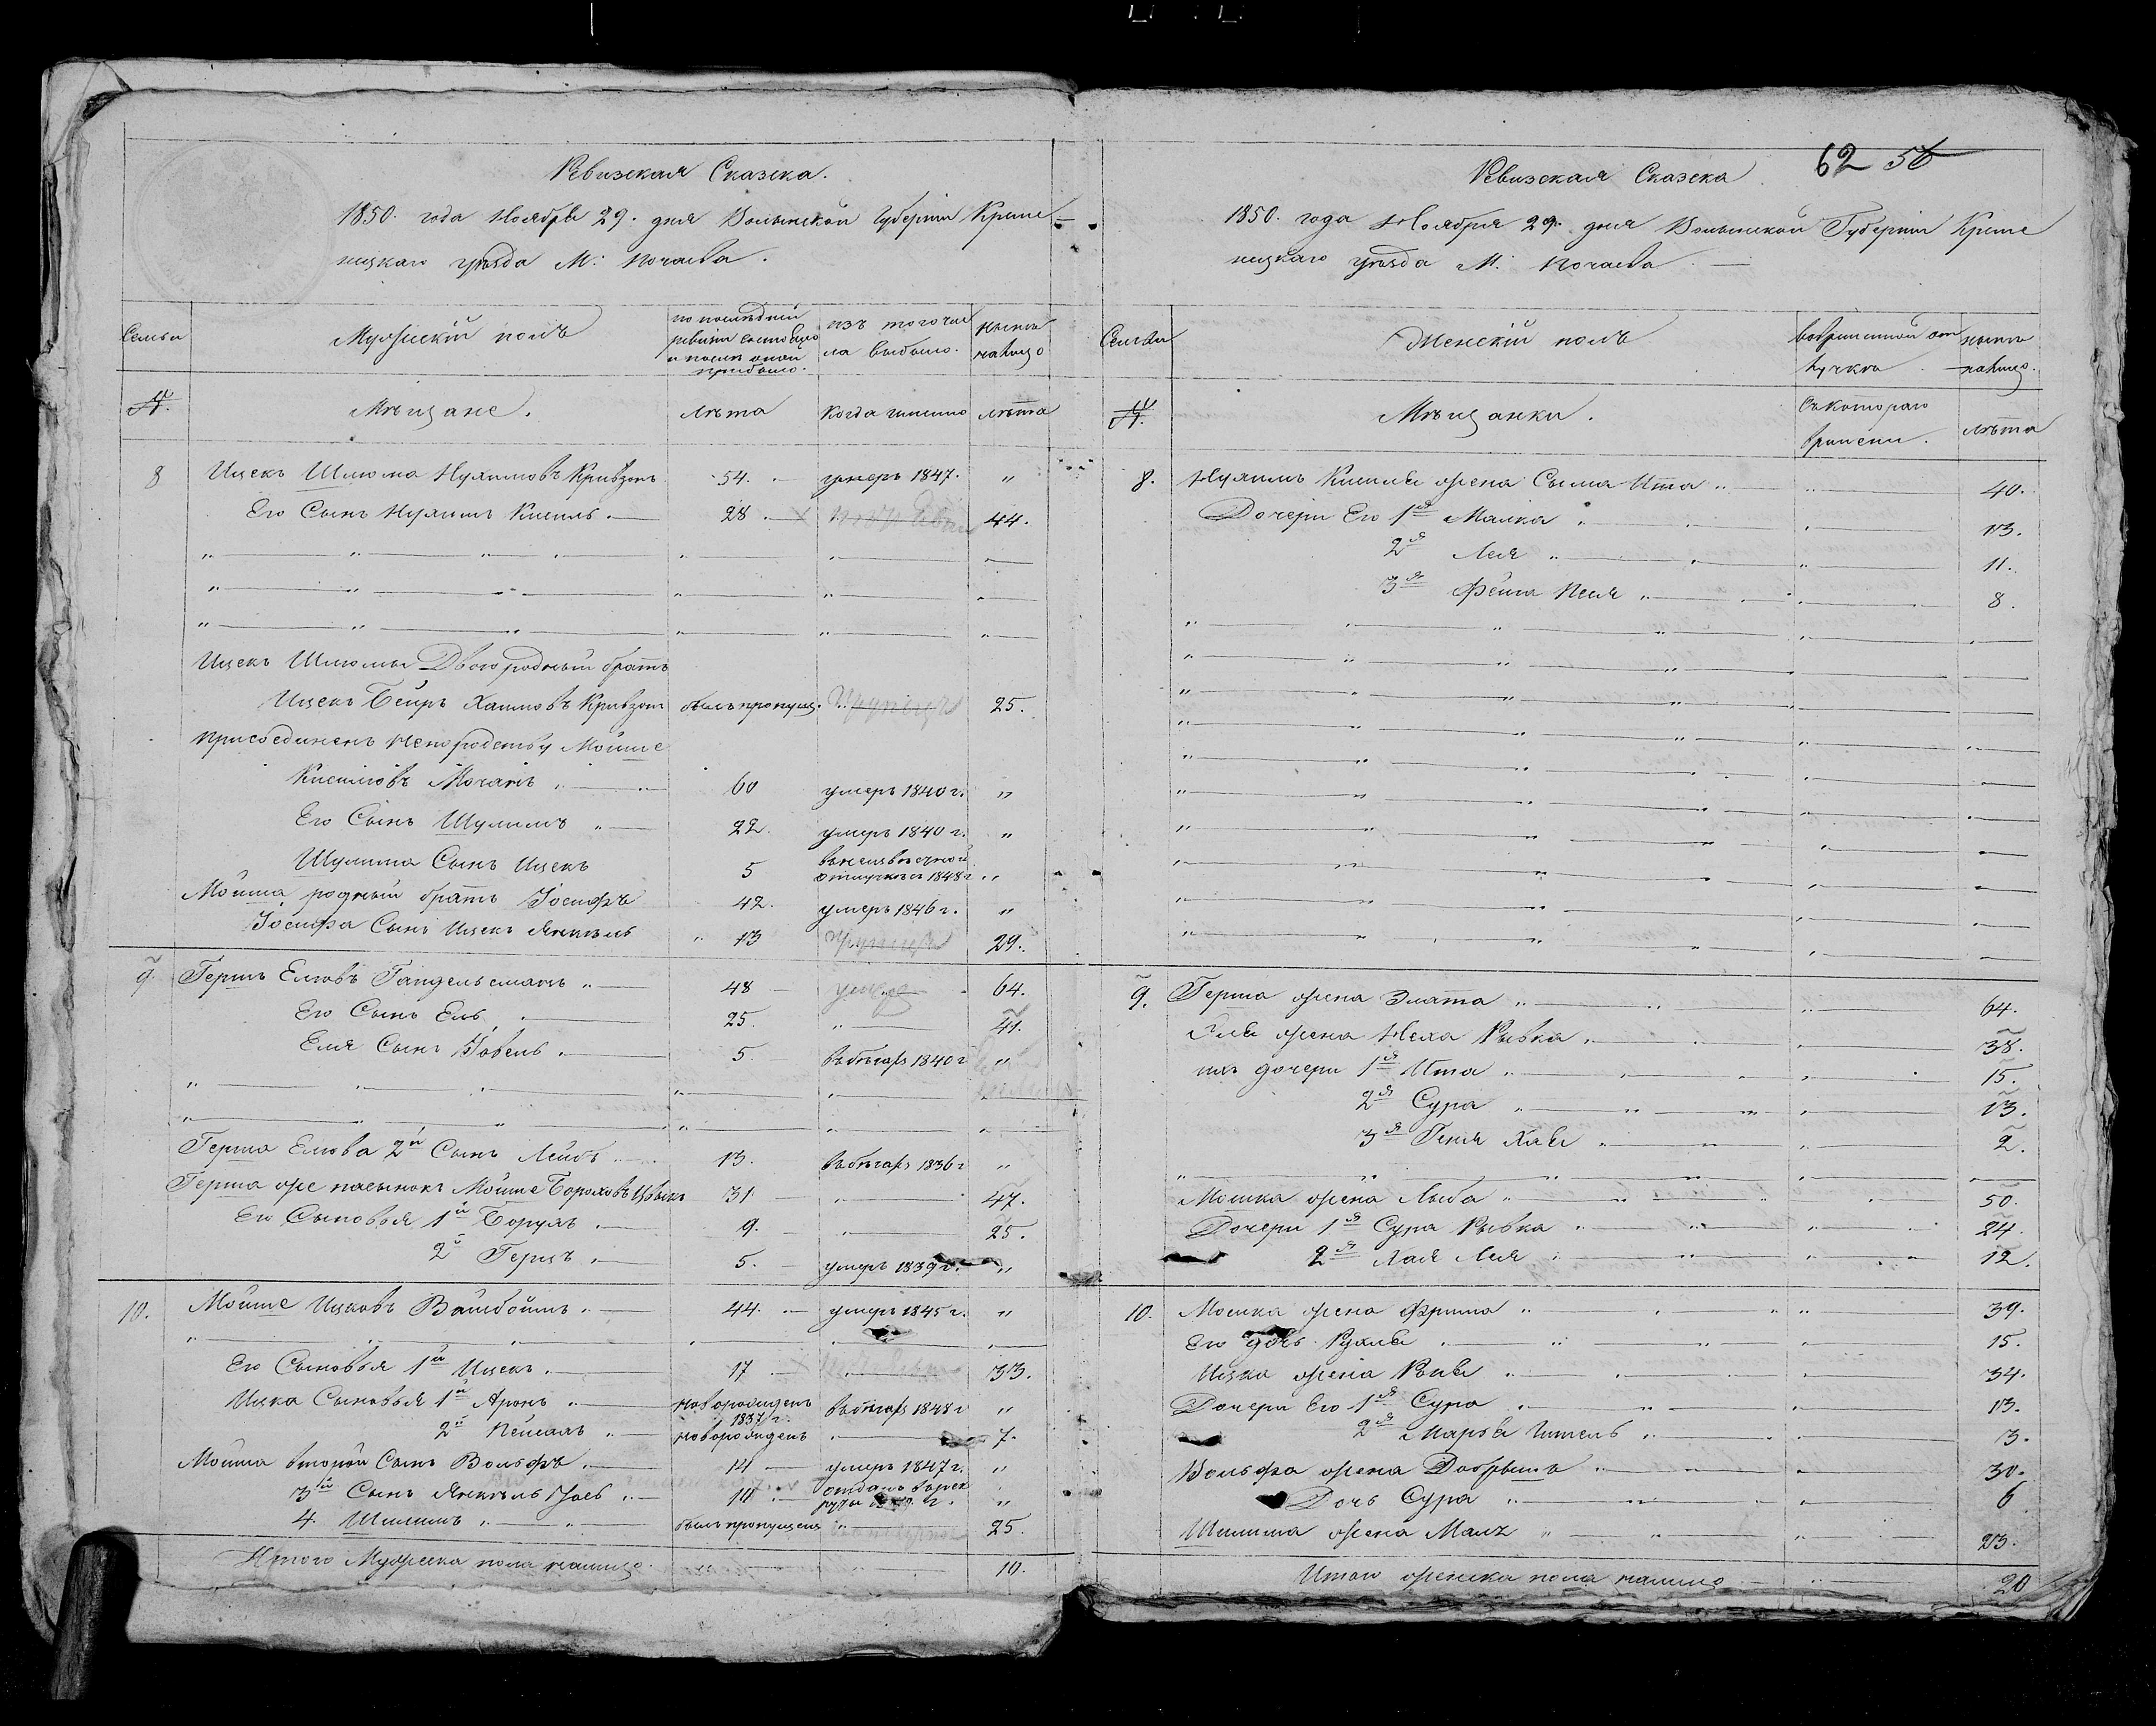 Ревизская Сказска.
1850. года Ноября 29. дня Волынской Губерніи Креме-
нецкаго уѣзда М: Почаева.
Семьи
Мужескій полъ
по послѣдней
ревизіи состояло
и послѣ оной
прибыло.
изъ того чис
ла выбыло.
ныне
налицо
№.
Мѣщане.
лѣта
Когда имянно
лѣта
8 Ицекъ Шлюма Нухимовъ Кривзонъ 54. умеръ 1847. "
Его Сынъ Нухимъ Кисиль. 28. 44.
Ицекъ Шлюмы Двоюродный братъ
Ицекъ Беиръ Хаимовъ Кривзон былъ пропущ. 25.
присоединенъ Мойше
Кисилювъ 60 умеръ 1840 г. "
Его Сынъ Шулимъ 22. умеръ 1840 г. "
Шулима Сынъ Ицекъ 5 отлучкѣ съ 1848 г "
Мойша родный братъ Іосифъ 42. умеръ 1846 г. "
Іосифа Сынъ Ицекъ Янкель 13 29.
9. Гершъ Елювъ Гандельсманъ 48 64.
Его Сынъ Ель 25. 41.
Еля Сынъ Іовель 5. въ бѣгахъ 1840 г "
Герша Елюва 2й Сынъ Лейбъ 13. въ бѣгахъ 1836 г "
Герша же пасынокъ Мойше Бороховъ 31. 47.
Его Сыновья 1й Борухъ 9. 25.
2й Герцъ 5. умеръ 1839 г. "
10. Мойше Ицковъ Вайнбоймъ 44. умеръ 1845 г. "
Его Сыновья 1й Ицекъ. 17 33.
Ицка Сыновья 1й Аронъ новорожденъ
1837 г. въ бѣгахъ 1848 г "
2й Пейсахъ новорожденъ 7.
Мойша второй Сынъ Вольфъ. 14 умеръ 1847 г. "
3й Сынъ Янкель 10 отданъ въ рек
руты "
4. Шлиомъ былъ пропущенъ 25.
Итого Мужеска пола налицо. 10.
62 56
Ревизская Сказска
1850. года Ноября 29. дня Волынской Губерніи Креме
нецкаго уѣзда М: Почаева
Семьи
Женскій полъ
во временной от
лучкѣ
ныне
налицо.
№.
Мѣщанки.
Съ котораго
времени.
лѣта
8. Нухимъ Кисиля жена Сыма Ита 40.
Дочери Его 1я Малка 13.
2я Лея 11.
3я Фейга Песя 8.
9. Герша жена Злата 64.
Еля жена Неха Рывка 38.
ихъ дочери 1я Ита 15.
2я Сура 13.
3я Геня Хая 2.
Мошка жена Лыба 50.
Дочери 1я Сура Рывка 24.
2я Хая Лея 12.
10. Мошка жена Фрима 39.
Его дочь Рухля 15.
Ицка жена Рыва 34.
Дочери Его 1я Сура 13.
2я Марья Гитель 3.
Вольфа жена Добрышъ 30.
Дочь Сура 6
Шлиома жена 23.
Итого женска пола налицо 20